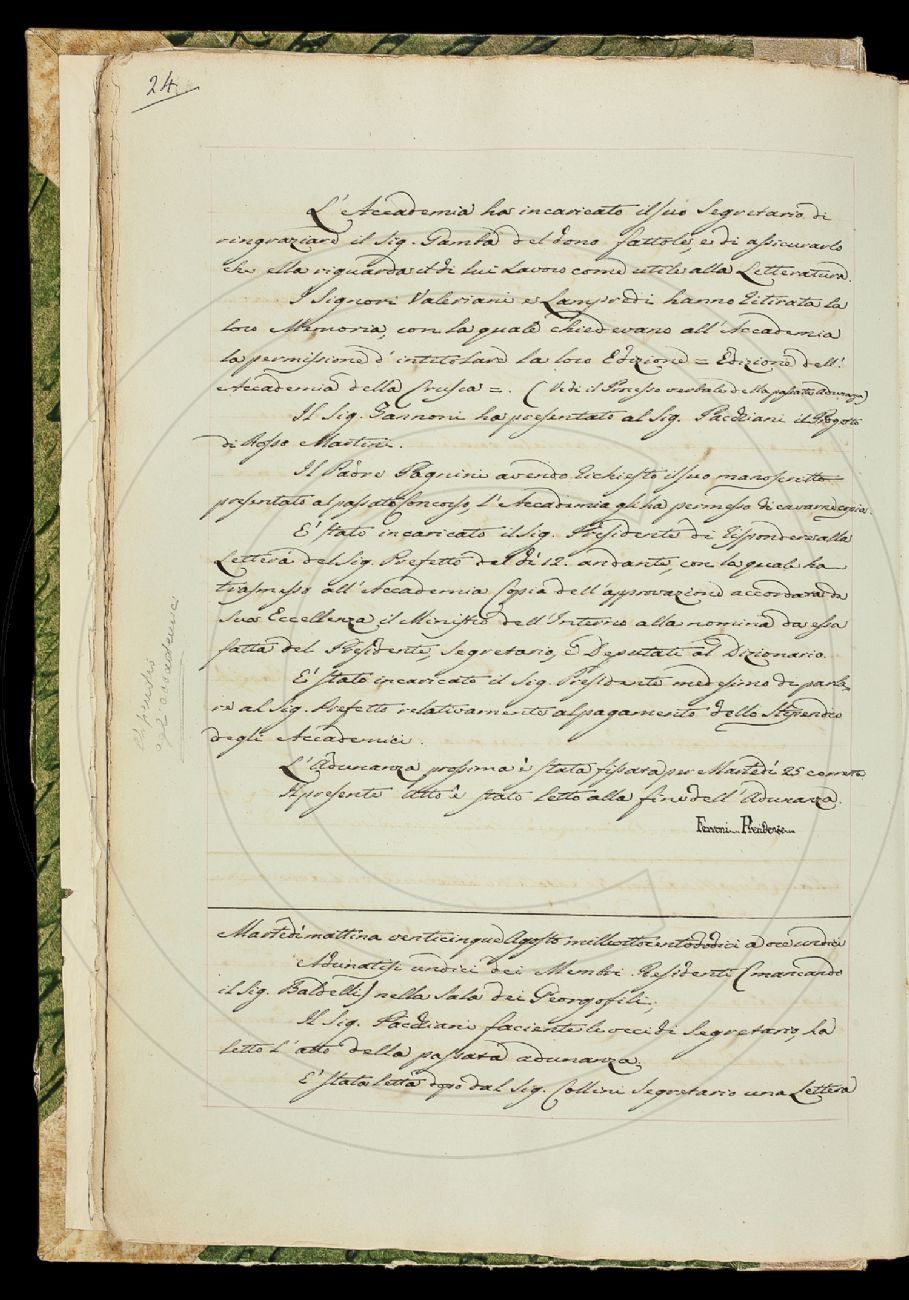 24.
L'Accademia ha incaricato il suo Segretario di
ringraziare il Sig. Gamba del dono fattole, e di assicurarlo
che ella riguarda il di lui Lavoro come utile alla Letteratura.
I Signori Valeriani e Lampredi hanno ritirata la
loro Memoria, con la quale chiedevano all'Accademia
la permissione d'intitolare la loro Edizione = Edizione dell'
Accademia della Crusca =. (Vedi il Processo verbale della passata Adunanza)
Il Sig. Zannoni ha presentato al Sig. Pacchiani il
di Rosso Martini.
Il Padre Pagnini avendo richiesto il suo manoscritto
presentato al passato Concorso, l'Accademia gli ha permesso di cavarne copia.
E' stato incaricato il Sig. Presidente di rispondere alla
Lettera del Sig. Prefetto del dì 12. andante, con la quale ha
trasmesso all'Accademia Copia dell'approvazione accordata da
Sua Eccellenza il Ministro dell'Interno alla nomina da essa
fatta del Presidente, Segretario, e Deputati al Dizionario.
E' stato incaricato il Sig. Presidente medesimo di parla-
re al Sig. Prefetto relativamente al pagamento dello Stipendio
degli Accademici.
Stipendio
agli accademici
L'Adunanza prossima è stata fissata per Martedì 25 corrente
Il presente Atto è stato letto alla fine dell'Adunanza.
Ferroni Presidente
Martedì mattina venticinque Agosto milleottocentododici a ore undici
Adunatisi undici dei Membri Residenti (mancando
il Sig. Baldelli) nella Sala dei Georgofili,
Il Sig. Pacchiani facente le veci di Segretario, ha
letto l'atto della passata adunanza.
E' stata letta dopo dal Sig. Collini Segretario una Lettera